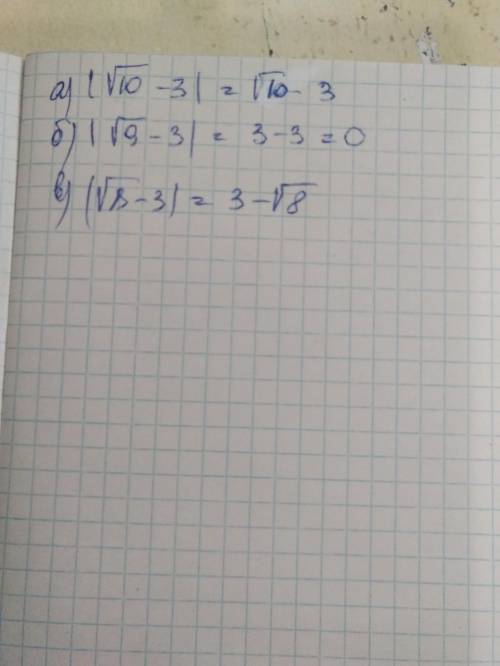 а) |√10 - 3| = √10 - 3
б) |√9 - 3| = 3 - 3 = 0
в) |√8 - 3| = 3 - √8